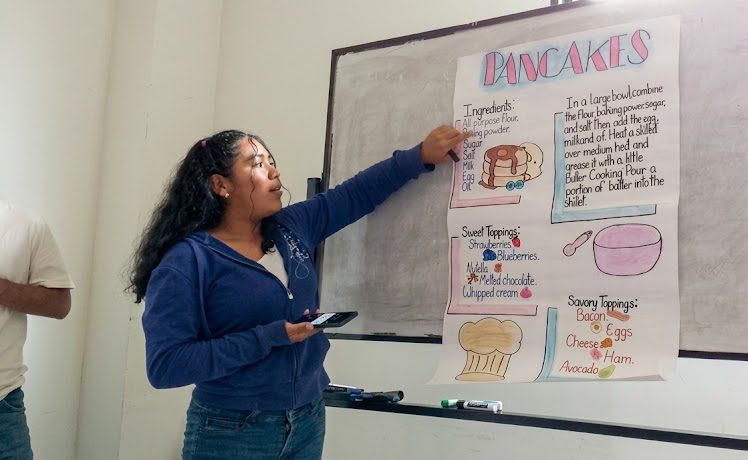 PANCAKES
Ingredients:
All purpose flour.
Baking powder.
Sugar
Salt
Milk
Egg
Oil
In a large bowl,combine
the flour, baking power, sugar,
and salt Then add the egg,
milkand of. Heat a skilled
over medium hed and
grease it with a little
Butler Cooking Pour a
portion of batter into the
shilet.
Sweet Toppings:
Strawberries.
Blueberries.
Nutella
Melted chocolate.
Whipped cream
Savory Toppings:
Bacon.
Eggs
Cheese
Ham.
Avocado